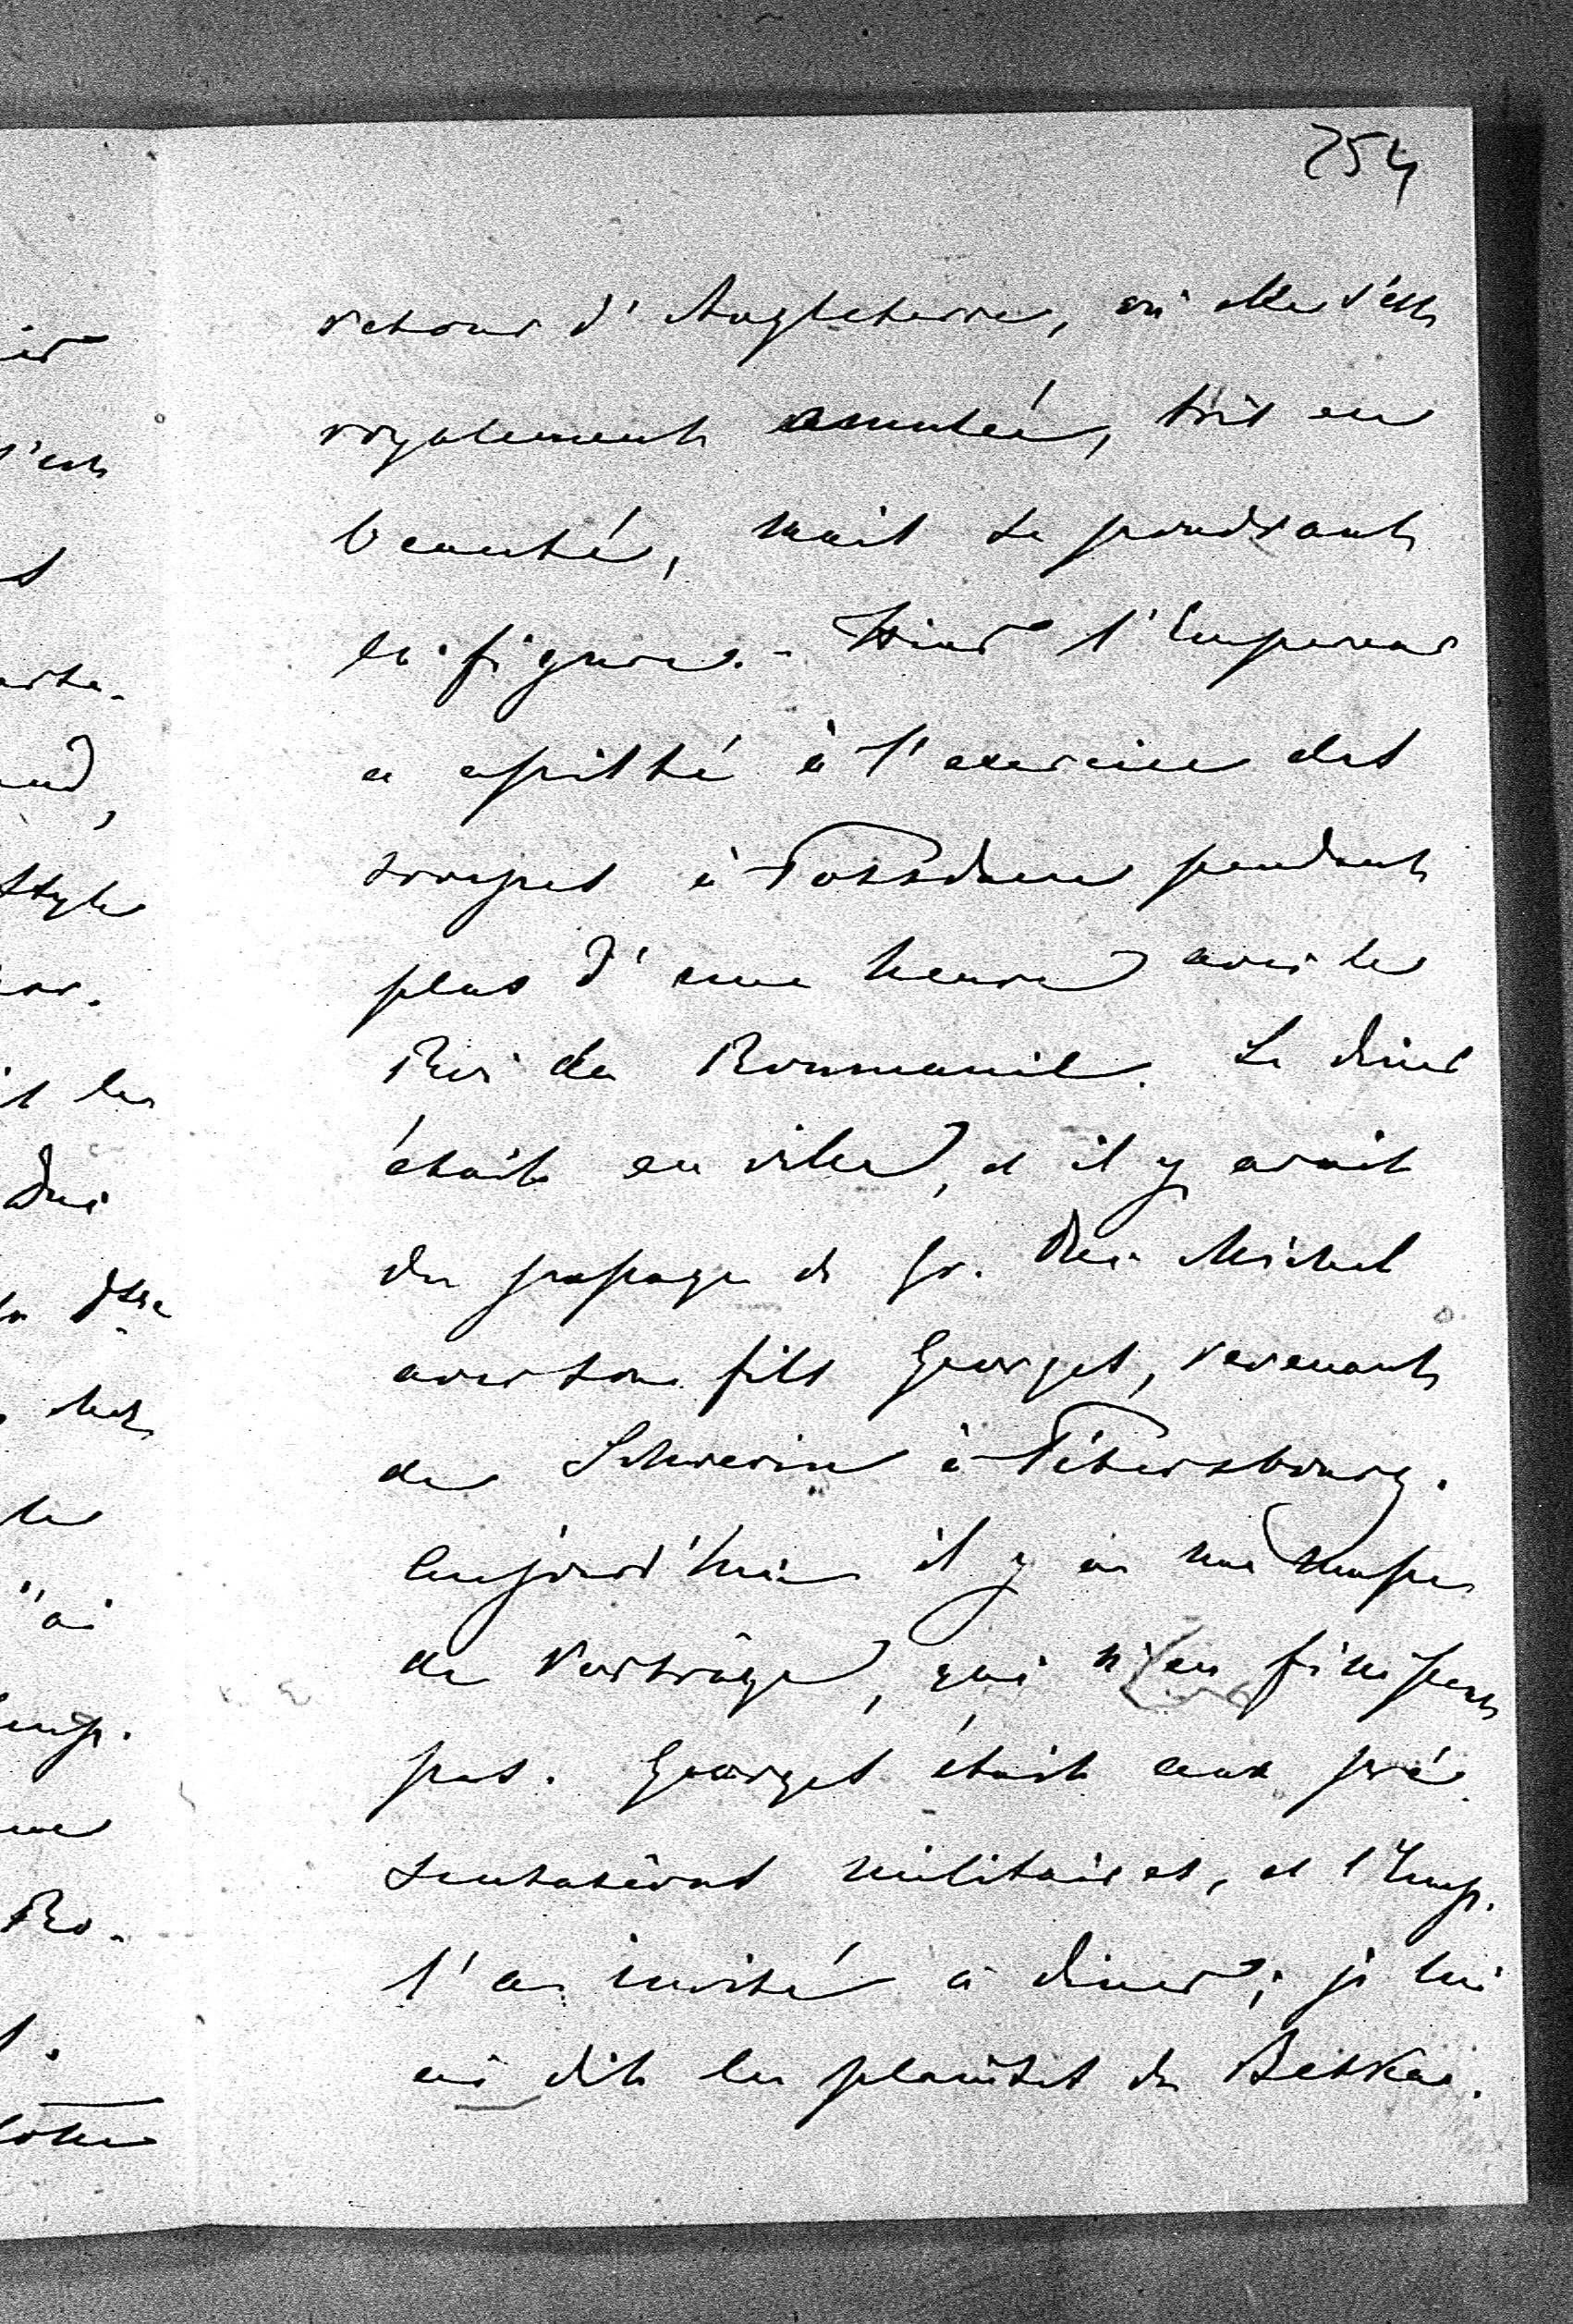 254
retour d'Angleterre, où elle s'est
royalement amusée, très en
beauté, mais se poudrant
la figure. - Hier l'Empereur
a assisté à l'exercice des
troupes à Potsdam pendant
plus d'une heure avec le
Roi de Roumanie. Le diner
était en ville, et il y avait
du passage le Gr. Duc Michel
avec son fils Georges, revenant
de Schwerin à Pétersbourg.
Aujourd'hui il y a une masse
de Vorträge, qui n'en finissent
pas. Georges était aux pré
sentations militaires, et l'Emp.
l'a invité à diner; je lui
ai dit les plaintes de